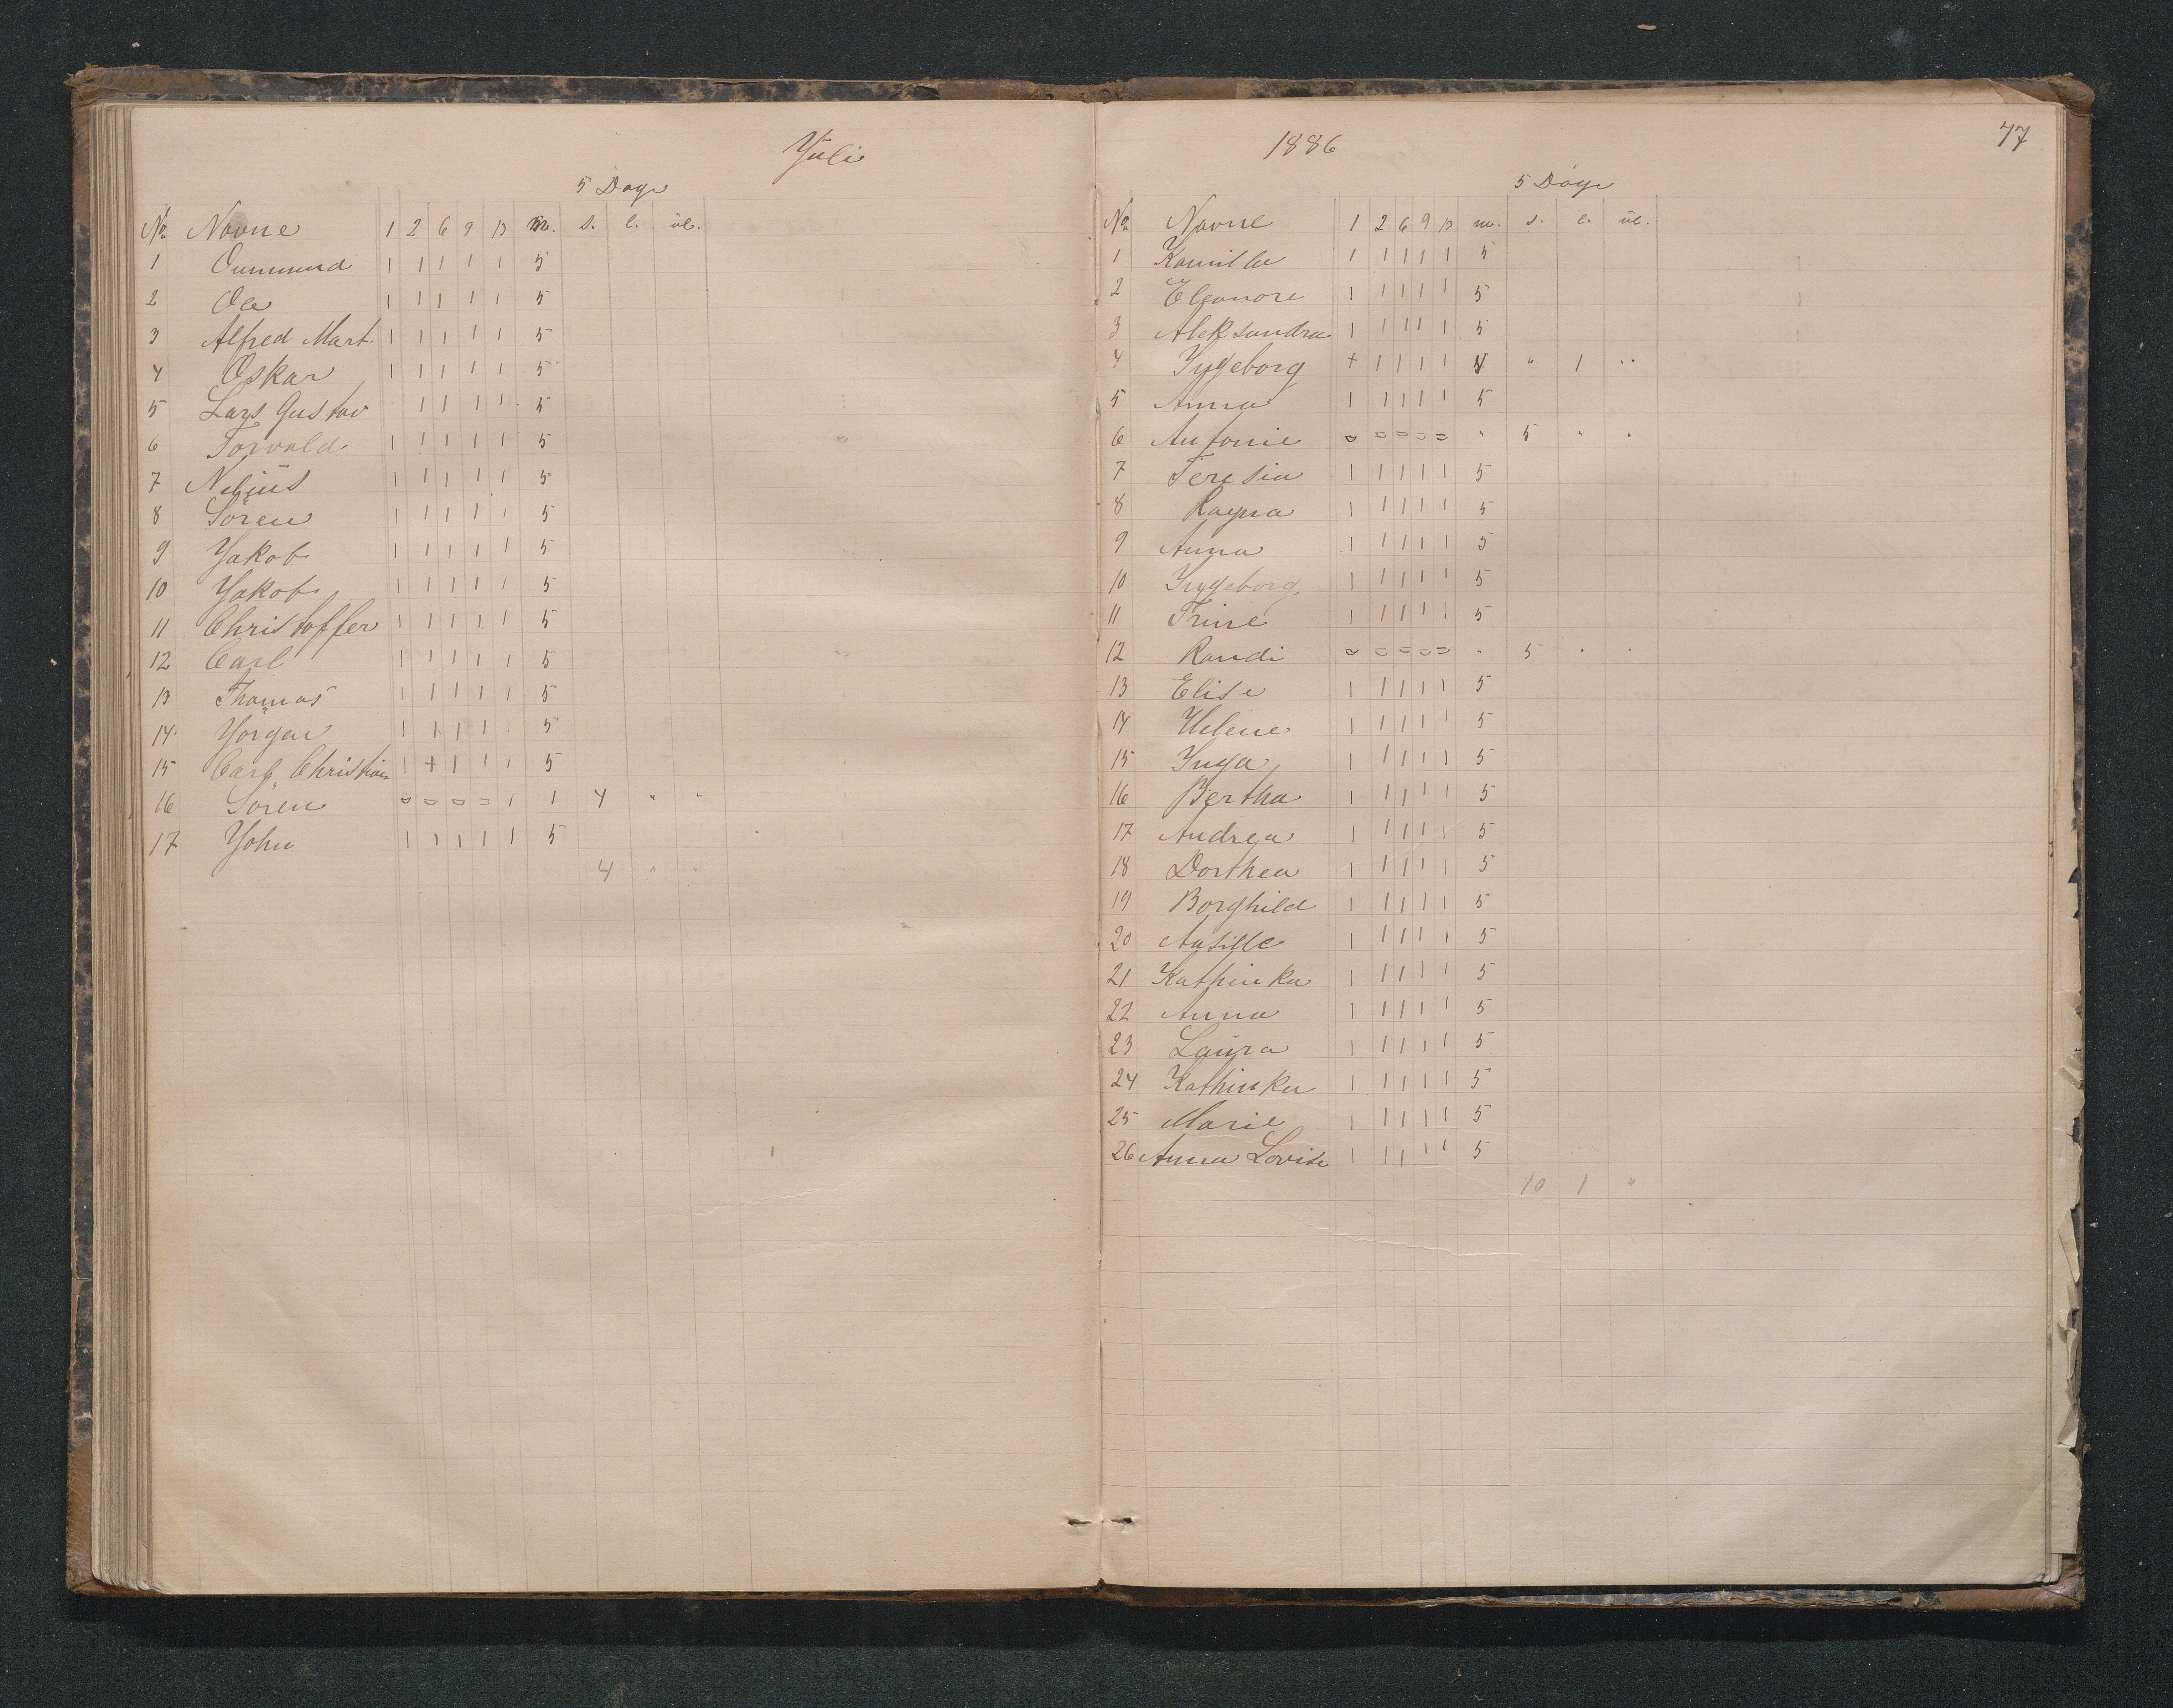 Juli
5 Dage
No Navne 1 2 6 9 13 m. s. l. ul.
1 Ommund 1 1 1 1 1 5
2 Ole 1 1 1 1 1 5
3 Alfred Mart. 1 1 1 1 1 5
4 Oskar 1 1 1 1 1 5
5 Lars Gustav 1 1 1 1 5
6 Torvald 1 1 1 1 1 5
7 Nelius 1 1 1 1 1 5
8 Sören 1 1 1 1 1 5
9 Jakob 1 1 1 1 1 5
10 Jakob 1 1 1 1 1 5
11 Christoffer 1 1 1 1 1 5
12 Carl 1 1 1 1 1 5
13 Thomas 1 1 1 1 1 5
14 Jörgen 1 1 1 1 1 5
15 Carl Christian 1 + 1 1 1 5
16 Sören = = = = 1 1 4 " "
17 John 1 1 1 1 1 5
4 " "
1886
77
5 Dage
No Navne 1 2 6 9 13 m. s. l. ul.
1 Kamilla 1 1 1 1 1 5
2 Eleonore 1 1 1 1 1 5
3 Aleksandra 1 1 1 1 1 5
4 Ingeborg + 1 1 1 1 4 " 1 "
5 Anna 1 1 1 1 1 5
6 Antonie = = = = = " 5 " "
7 Teresia 1 1 1 1 1 5
8 Ragna 1 1 1 1 1 5
9 Anna 1 1 1 1 1 5
10 Ingeborg 1 1 1 1 1 5
11 Trine 1 1 1 1 1 5
12 Randi = = = = = " 5 " "
13 Elise 1 1 1 1 1 5
14 Helene 1 1 1 1 1 5
15 Inga 1 1 1 1 1 5
16 Bertha 1 1 1 1 1 5
17 Andrea 1 1 1 1 1 5
18 Dorthea 1 1 1 1 1 5
19 Borghild 1 1 1 1 1 5
20 1 1 1 1 1 5
21 Kathinka 1 1 1 1 1 5
22 Anna 1 1 1 1 1 5
23 Laura 1 1 1 1 1 5
24 Kathinka 1 1 1 1 1 5
25 Marie 1 1 1 1 1 5
26 Anna Lovise 1 1 1 1 1 5
10 1 "